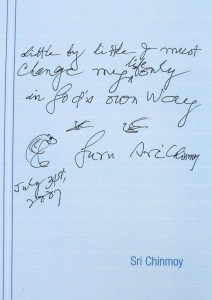 Little by little I must
Change my life only
in God's own Way
Guru Sri Chinmoy
July 31st,
2007
Sri Chinmoy